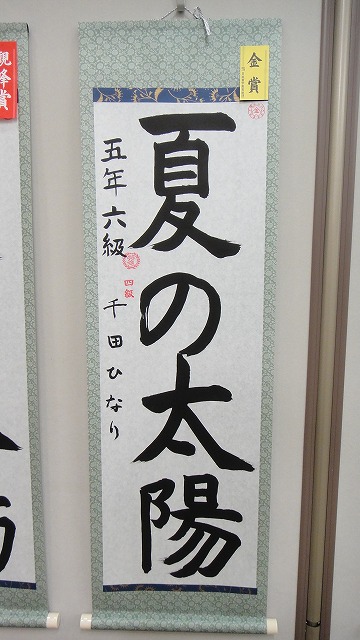 金賞
夏の太陽
五年六級
四級
千田ひなり
観峰賞